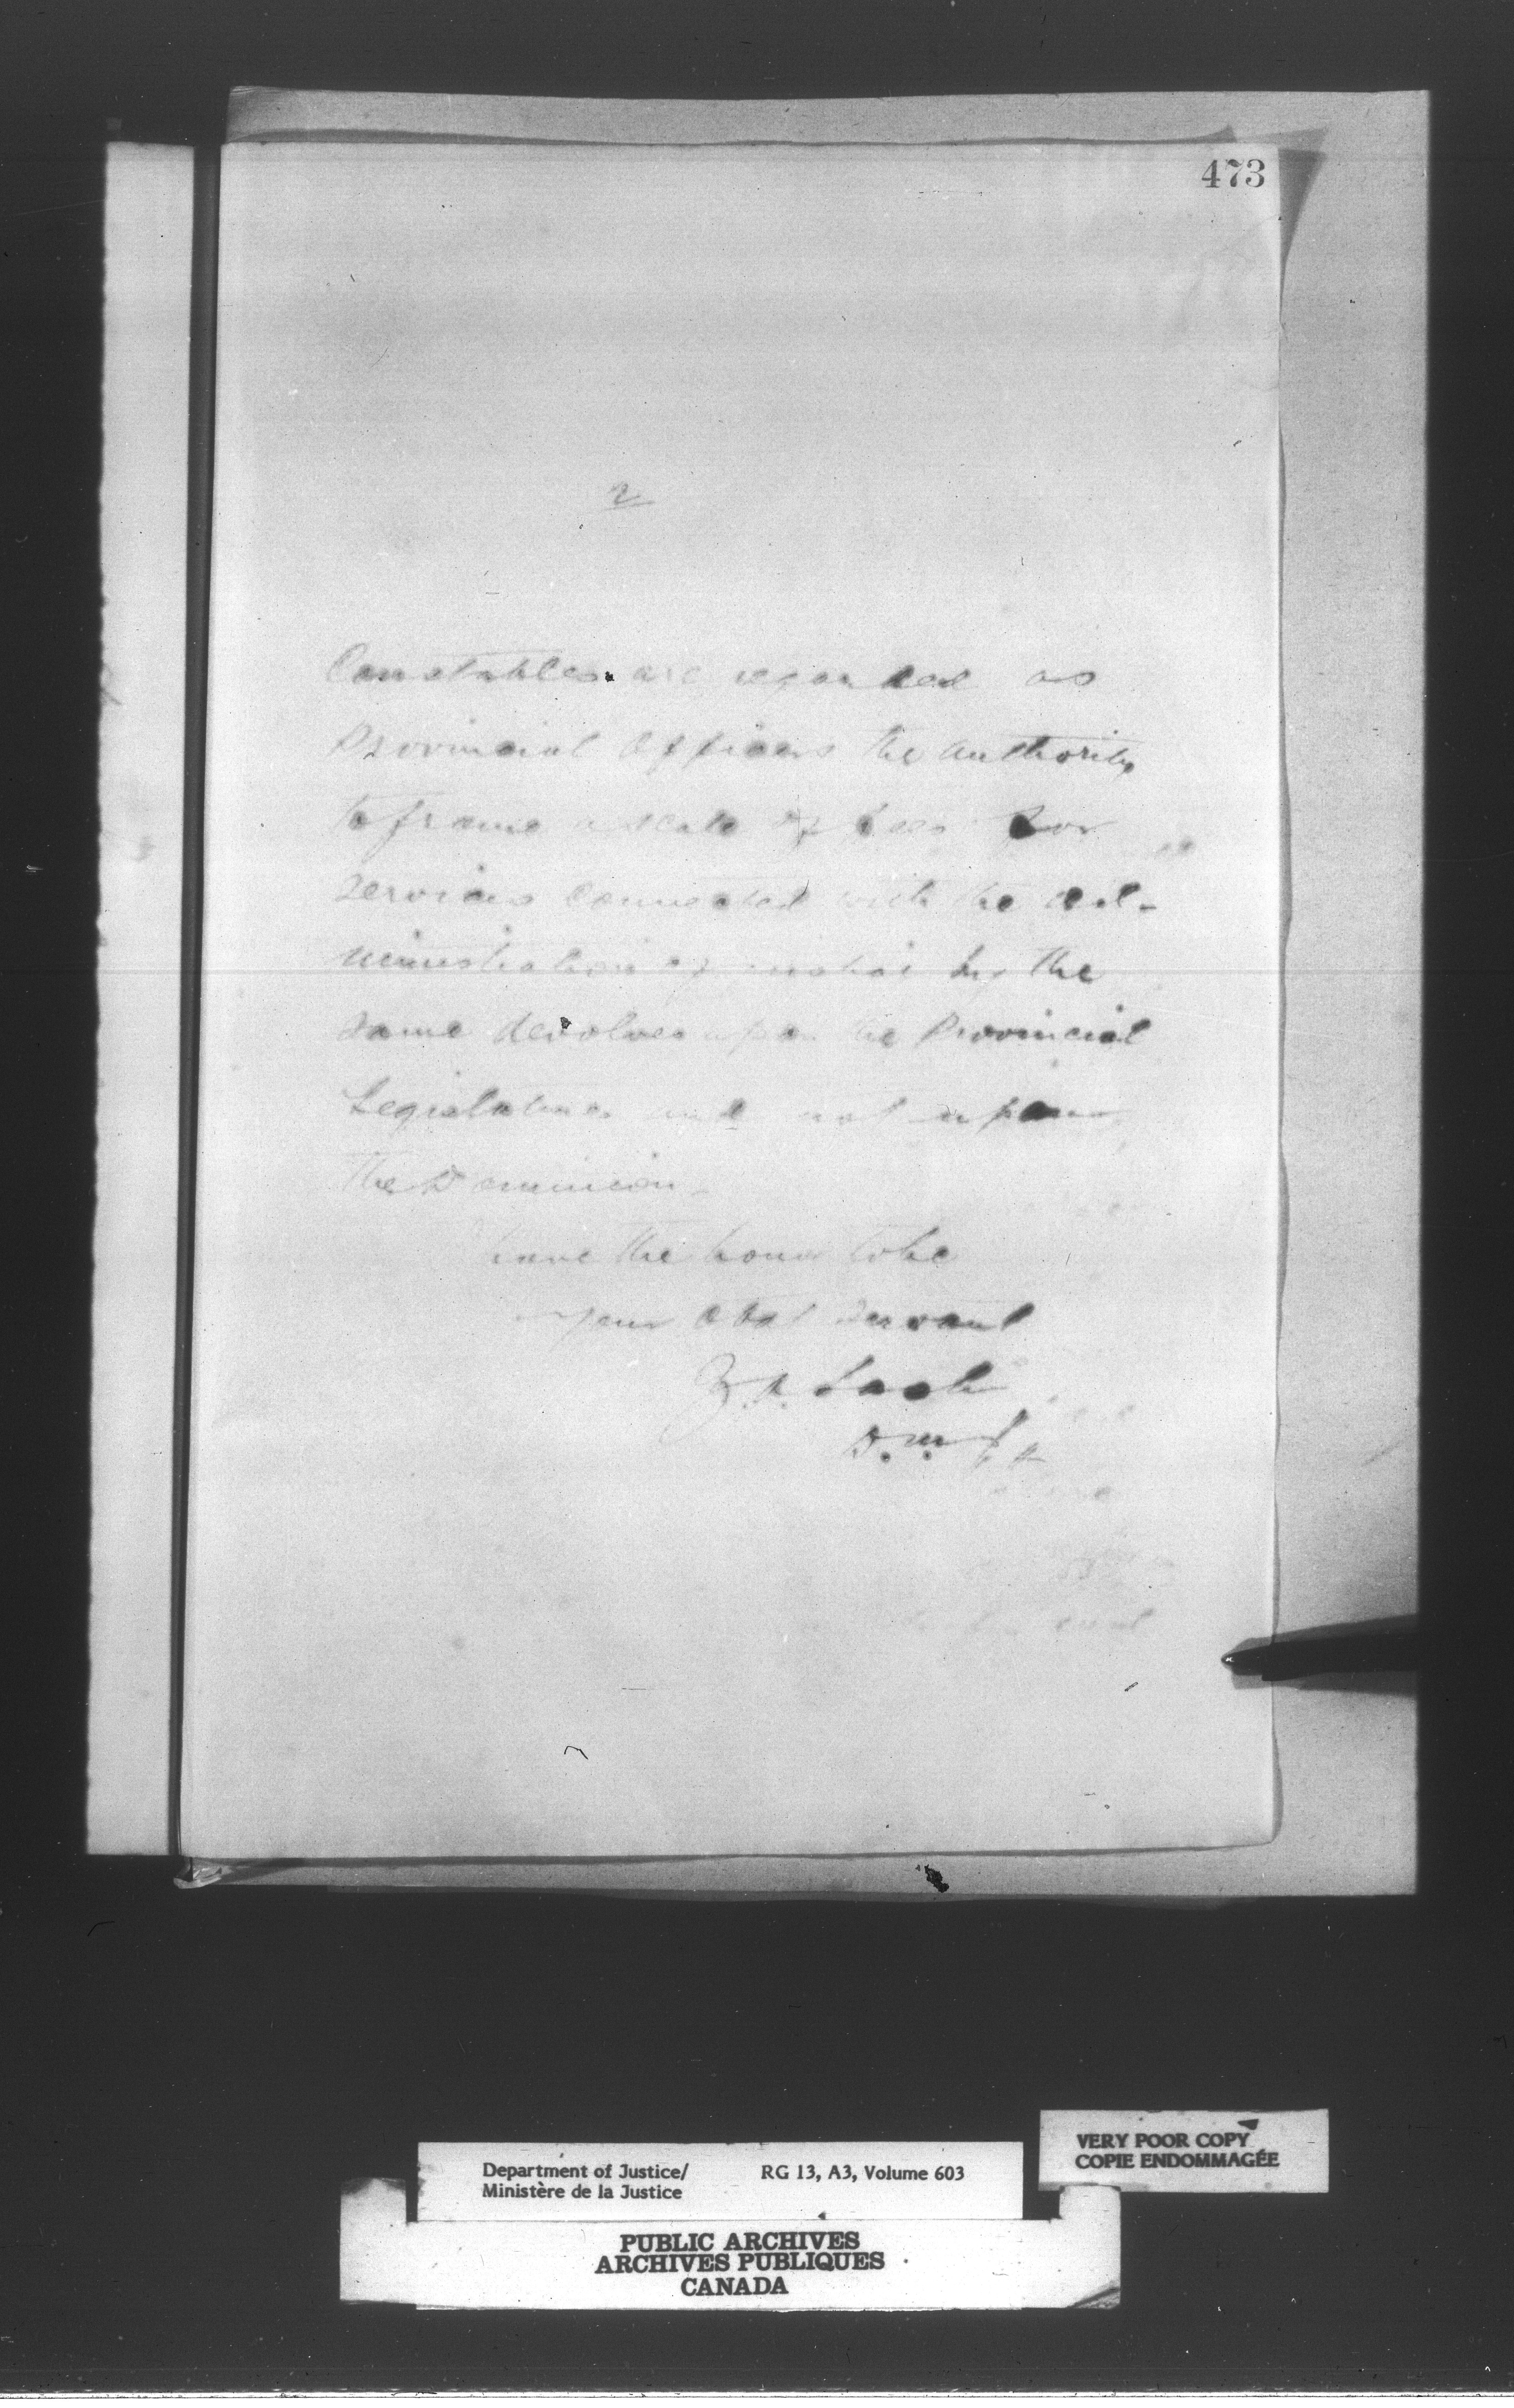 473
2
Constables are regarded as
Provincial Officers the authority
to frame a scale of fees for
services connected with the ad-
ministration of justice by the
same devolves upon the Provincial
Legislatures and not upon
the Dominion.
have the honor to be
your obdt servant
Z.A. Lash
D.M.J.
Department of Justice/ RG 13, A3, Volume 603
Ministère de la Justice
VERY POOR COPY
COPIE ENDOMMAGÉE
PUBLIC ARCHIVES
ARCHIVES PUBLIQUES
CANADA